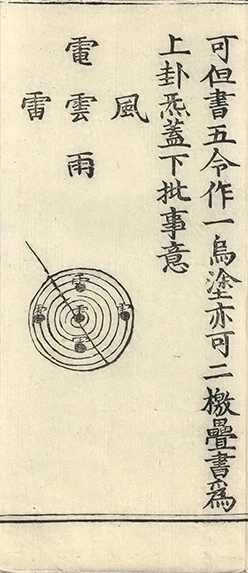 可但書五令作一烏塗亦可二檄疊書爲
上卦炁蓋下批事意
風
電雲雨
雷